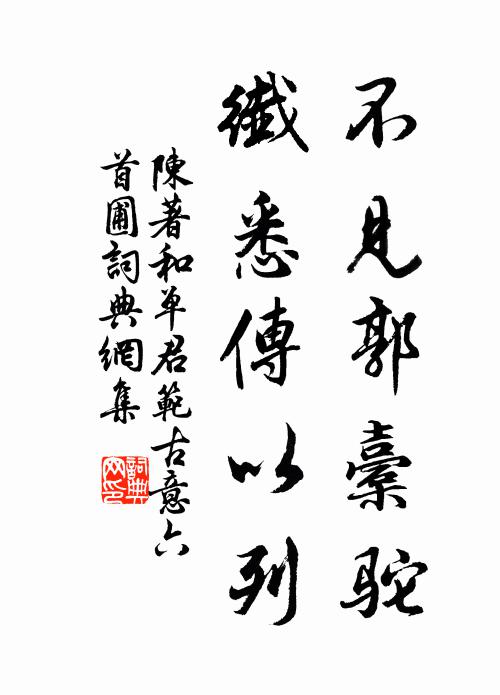 不見郭橐駝
纖悉傳以列
陳著和單君範古意六
首圃詞典網集
詞典
网印